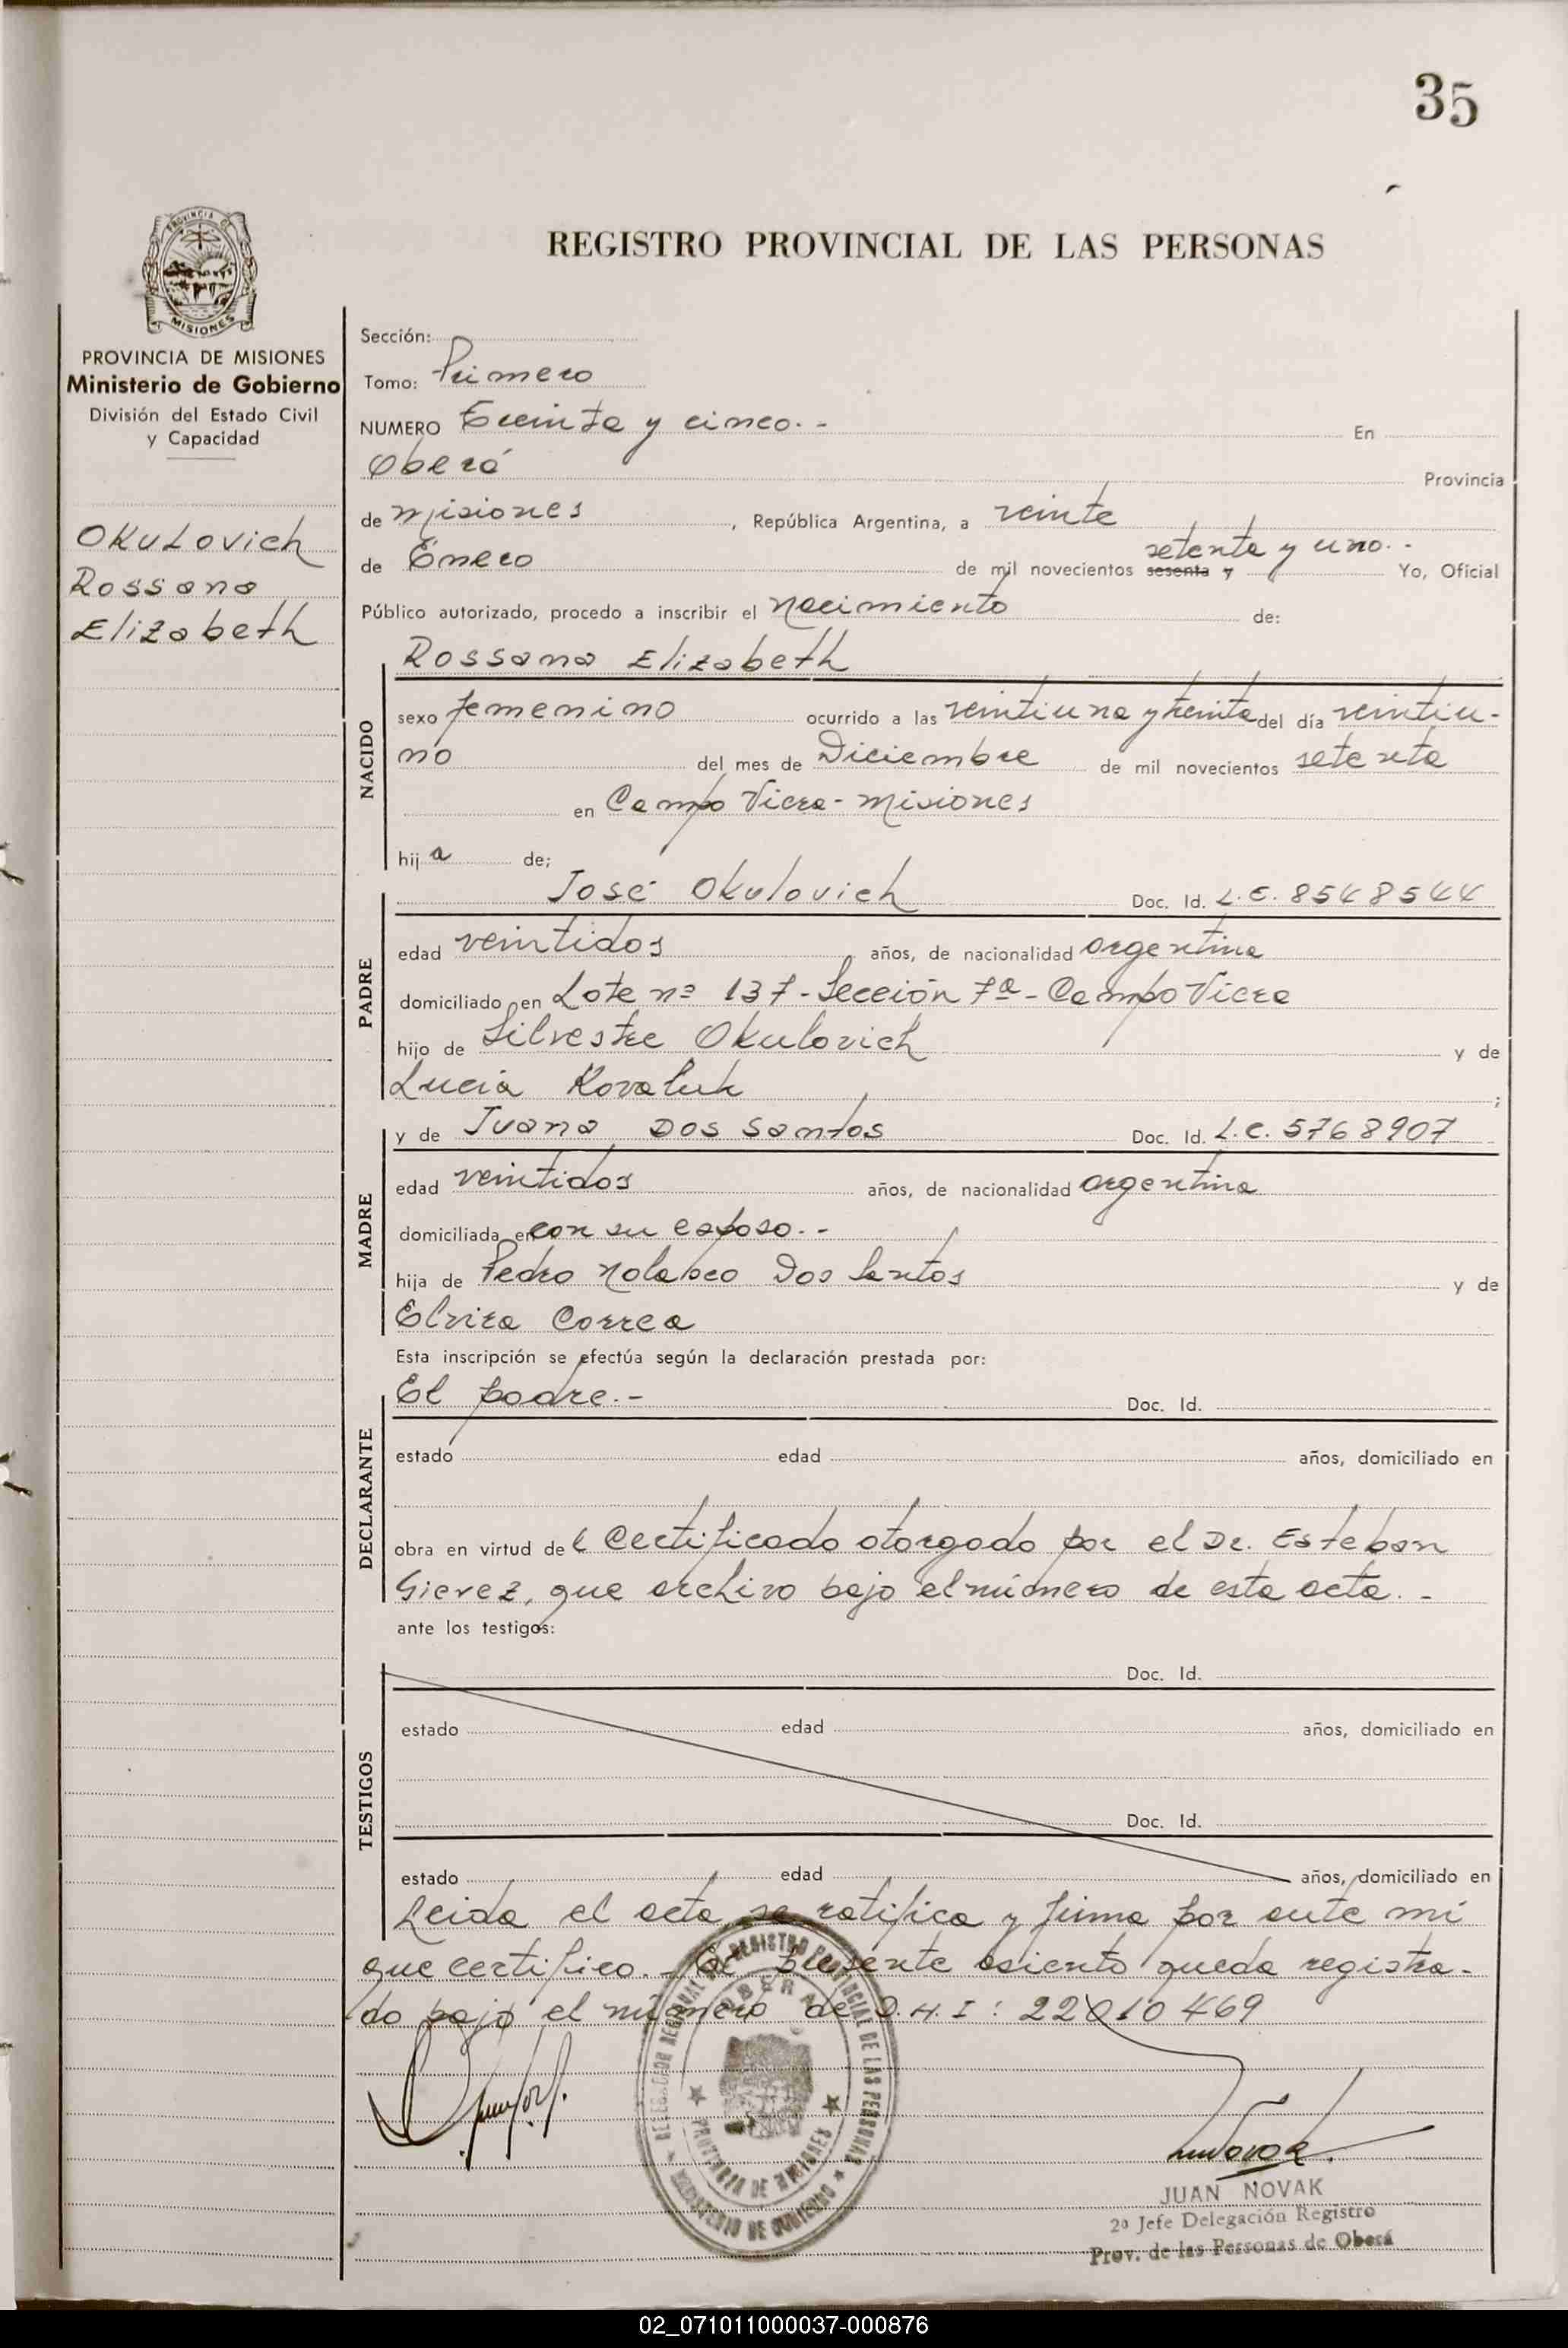 35
REGISTRO PROVINCIAL DE LAS PERSONAS
PROVINCIA DE
MISIONES
PROVINCIA DE MISIONES
Ministerio de Gobierno
División del Estado Civil
y Capacidad
OKULovich
Rossana
Elizabeth
Sección:
Tomo: Primero
NUMERO Treinta y cinco.- En
Oberá Provincia
de Misiones, República Argentina, a veinte
de Enero de mil novecientos sesenta y setenta y uno.- Yo, Oficial
Público autorizado, procedo a inscribir el nacimiento de:
Rossana Elizabeth
NACIDO
sexo femenino ocurrido a las veintiuna y treinta del día veintiu-
no del mes de Diciembre de mil novecientos setenta
en Campo Viera - Misiones
hija de;
José Okulovich Doc. Id. L.E. 8548544
PADRE
edad veintidos años, de nacionalidad argentina
domiciliado en Lote nº 137 - Sección 7ª - Campo Viera
hijo de Silvestre Okulovich y de
Lucia Kovaluk ;
y de Juana Dos Santos Doc. Id. L.C. 5768907
MADRE
edad veintidos años, de nacionalidad argentina
domiciliada en con su esposo.-
hija de Pedro Nolasco Dos Santos y de
Elvira Correa
Esta inscripción se efectúa según la declaración prestada por:
El padre.- Doc. Id.
DECLARANTE
estado edad años, domiciliado en
obra en virtud del Certificado otorgado por el Dr. Esteban
Gierez, que archivo bajo el número de esta acta.-
ante los testigos:
Doc. Id.
TESTIGOS
estado edad años, domiciliado en
Doc. Id.
estado edad años, domiciliado en
Leida el acta, se ratifica y firma por ante mi
que certifico.- El presente asiento queda registra-
do bajo el número de D.N.I: 22010469
DELEGACION REGIONAL DE REGISTRO PROVINCIAL DE LAS PERSONAS
OBERA
PROVINCIA DE MISIONES
MINISTERIO DE GOBIERNO
JUAN NOVAK
2º Jefe Delegación Registro
Prov. de las Personas de Oberá
02_071011000037-000876